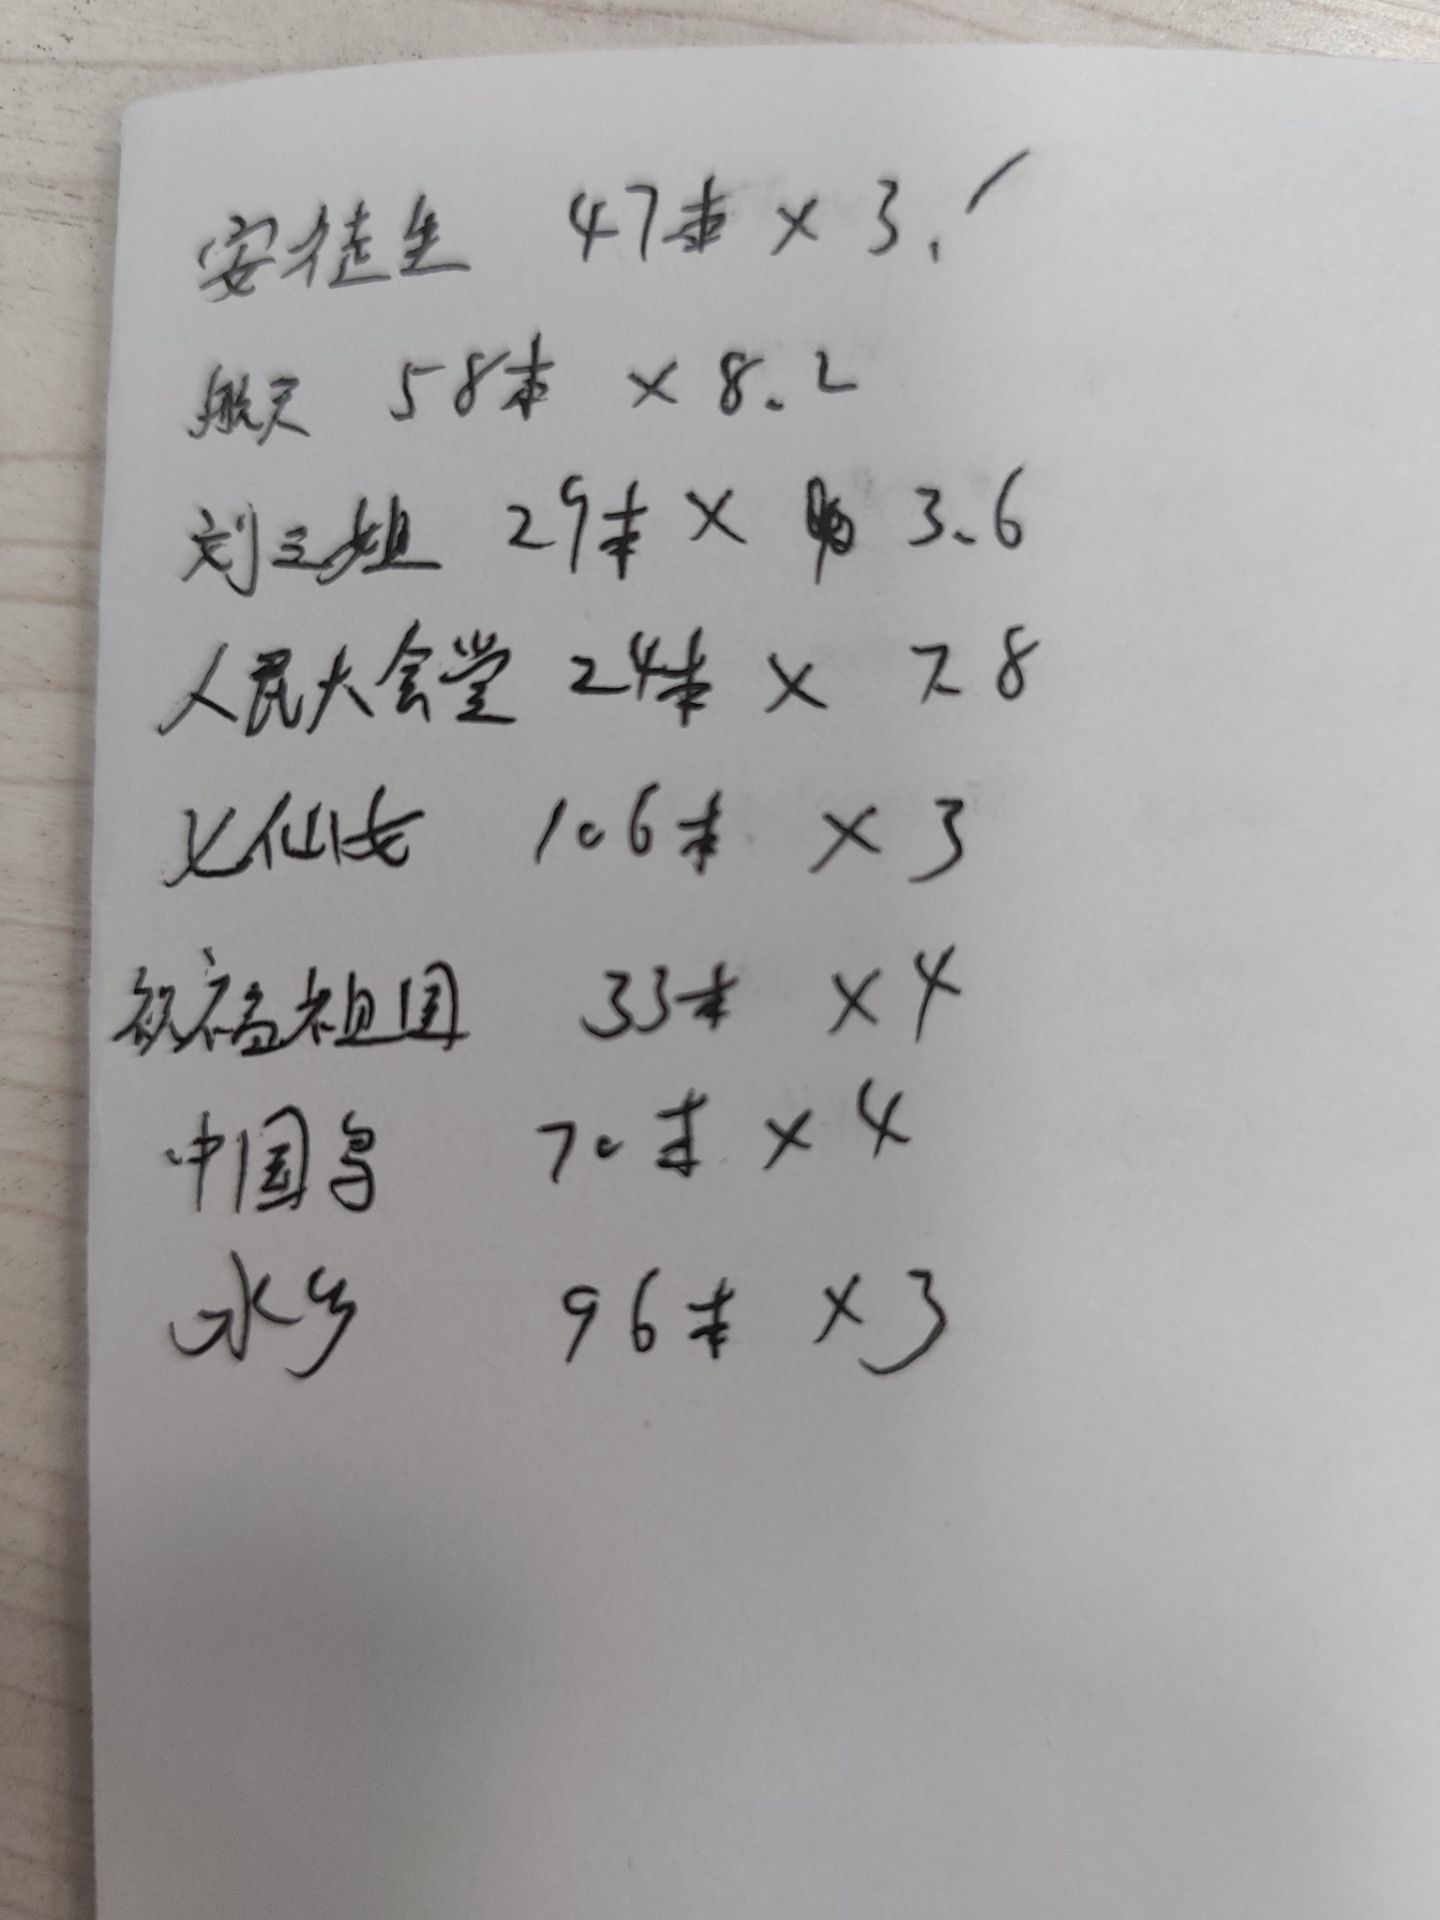 安徒生 47本 × 3.1
航天 58本 × 8.2
刘三姐 29本 × 3.6
人民大会堂 24本 × 7.8
七仙女 106本 × 3
祝福祖国 33本 × 4
中国鸟 70本 × 4
水乡 96本 × 3